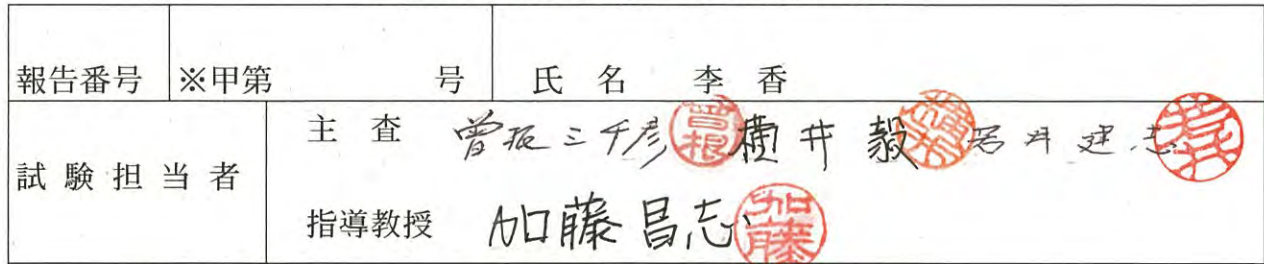 報告番号 ※甲第 号 氏 名 李 香
試験担当者
主 査 曾根三千彦 曾根 横井 毅 若井建志
指導教授 加藤昌志 加藤